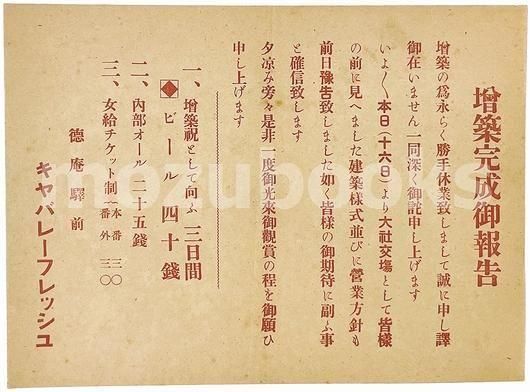 増築完成御報告
増築の為永らく勝手休業致しまして誠に申し譯
御在いません一同深く御詫申し上げます
いよ〳〵本日(十六日)より大社交場として皆様
の前に見へました建築様式並びに營業方針も
前日豫告致しました如く皆様の御期待に副ふ事
と確信致します
夕凉み旁々是非一度御光來御觀賞の程を御願ひ
申し上げます
一、增築祝として向ふ三日間
ビール四十錢
二、內部オール二十五錢
三、女給チケット制 本番 三〇
番外 三〇
德庵驛前
キャバレーフレッシュ
mozubooks